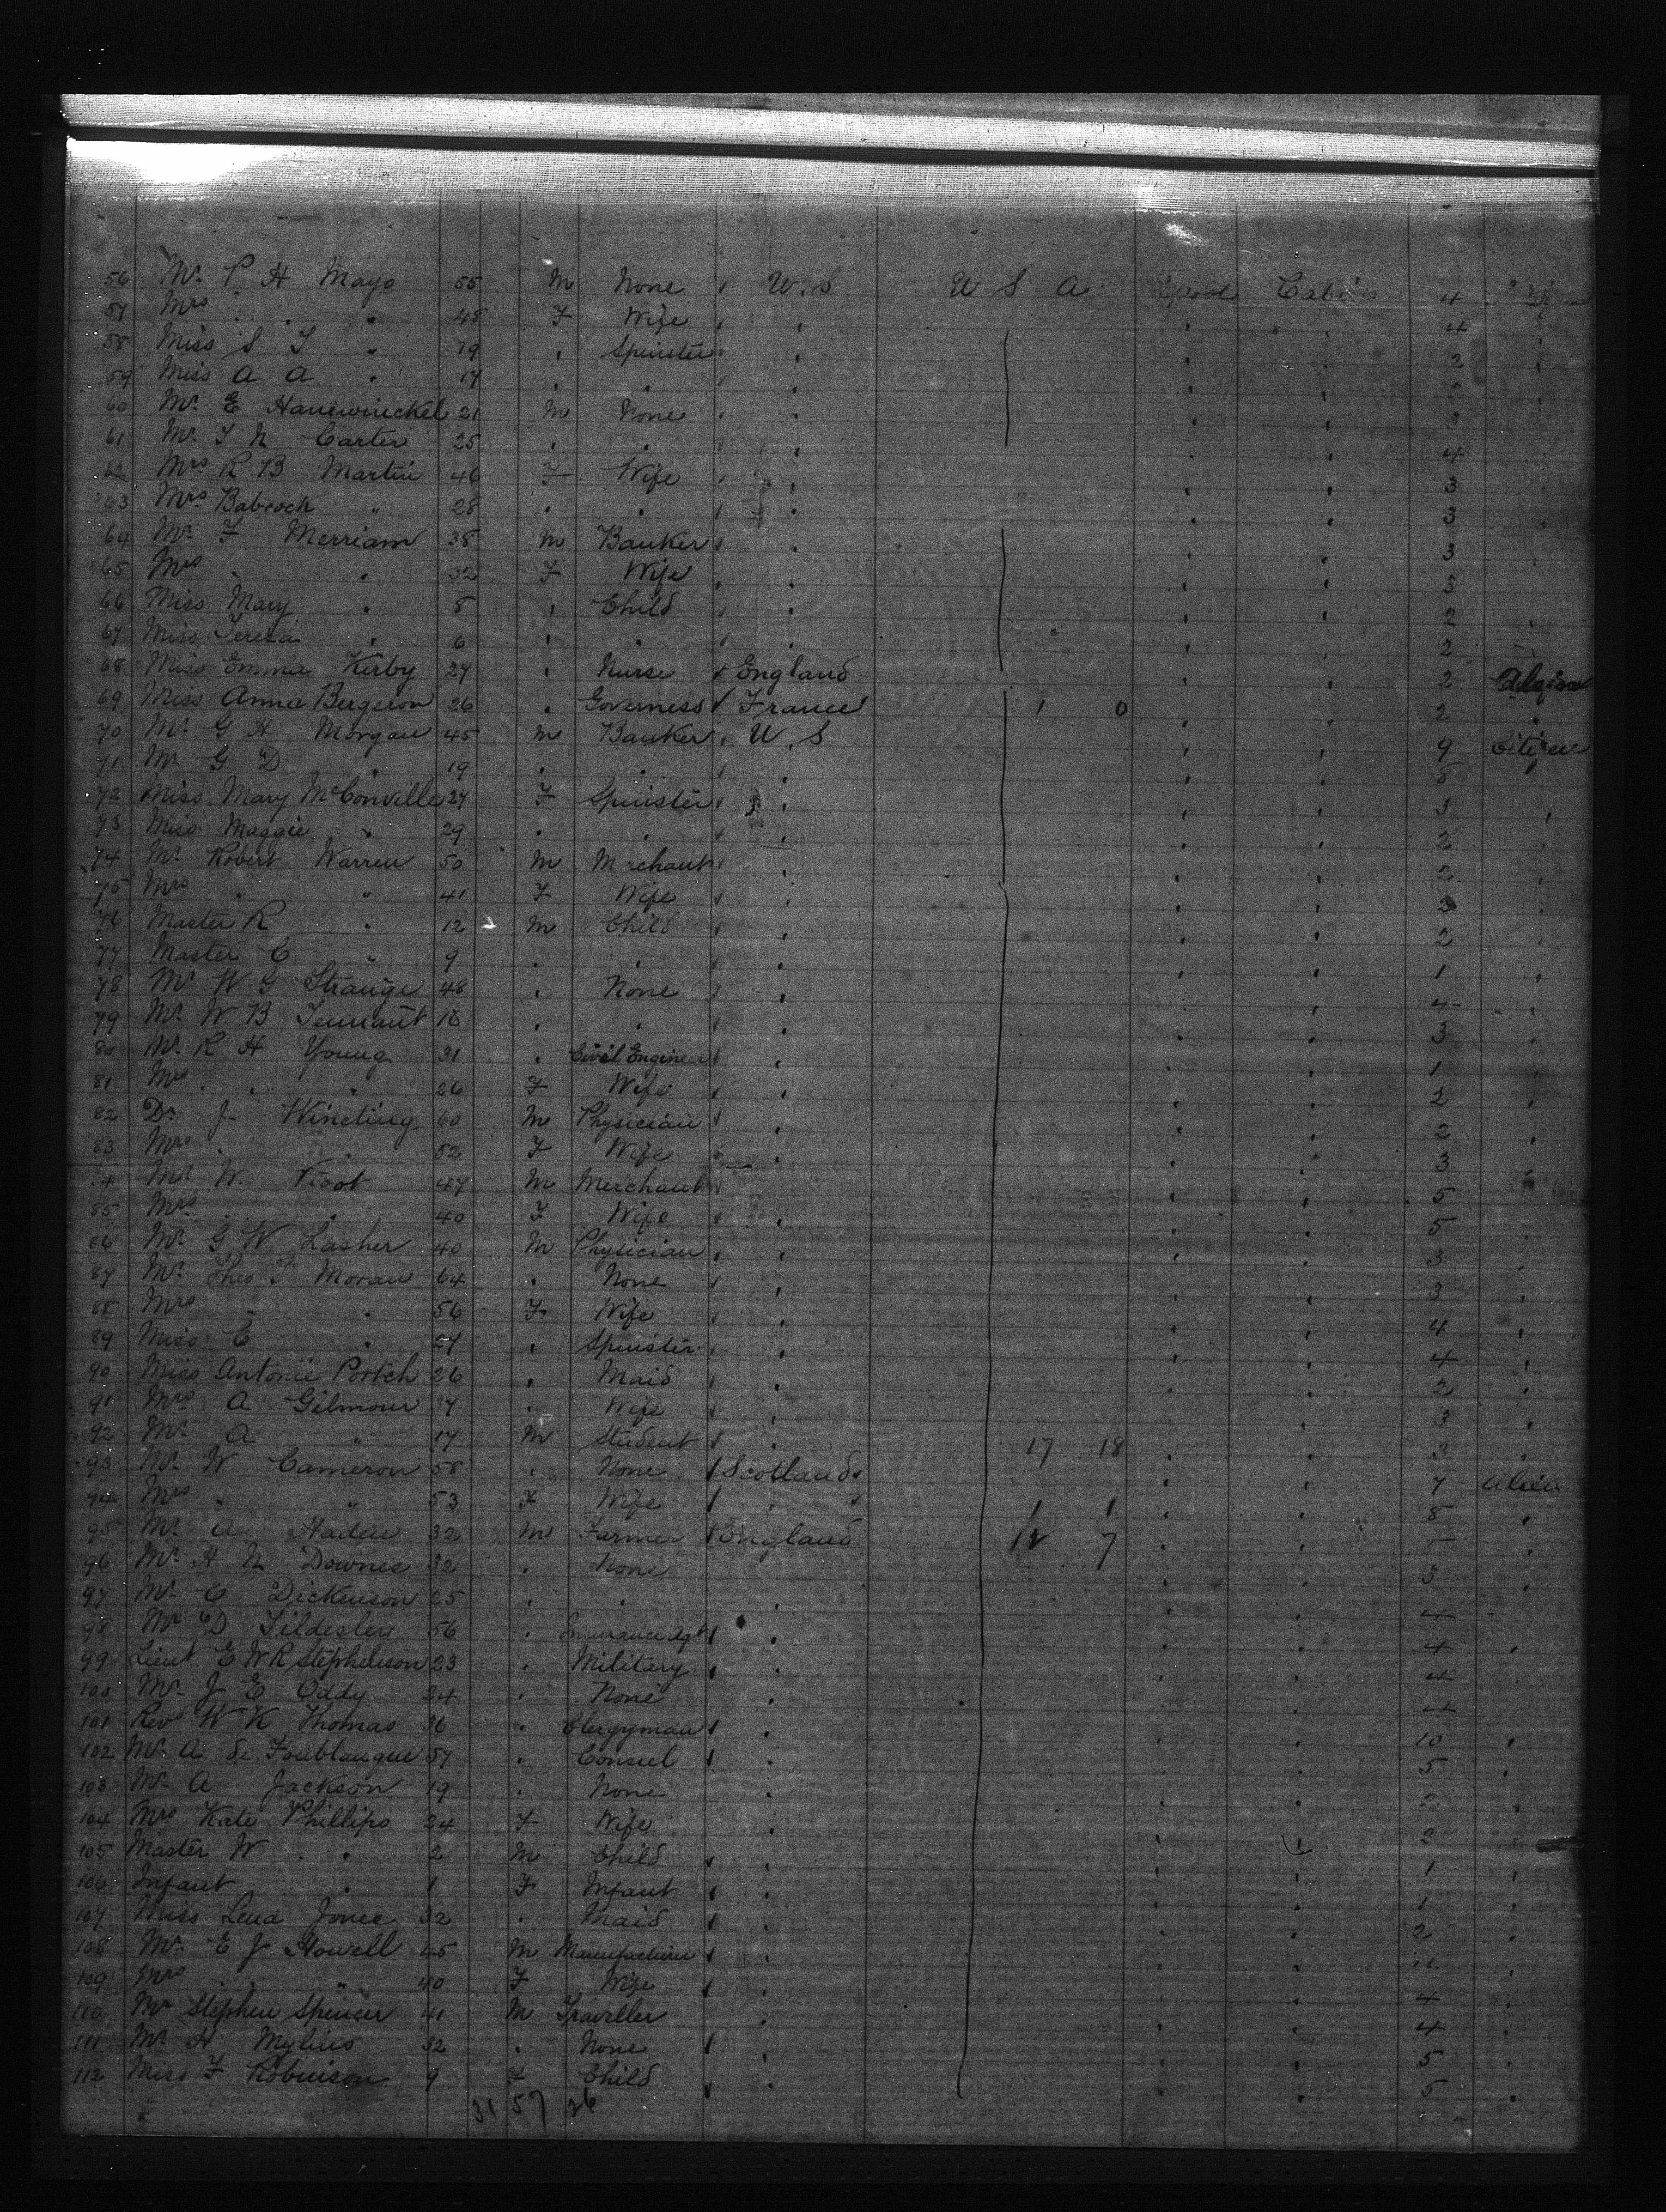 56 Mr. P H Mayo 55 M None " U.S U S A L'pool Cabin 4
57 Mrs " " " 48 F Wife " " " " 4 "
58 Miss S T " 19 " Spinster " " " " 2 "
59 Miss A A " 17 " " " " " " 2
60 Mr. E Hanewinckel 21 M None " " " " 3
61 Mr. T N Carter 25 " " " " " " 4
62 Mrs R B Martin 46 F Wife " " " " 3
63 Mrs. Babcock " 28 " " " " " " 3
64 Mr. F Merriam 38 M Banker " " " " 3
65 Mrs " " 32 F Wife " " " " 3
66 Miss Mary " 8 " Child " " " " 2 "
67 Miss Teresa " 6 " " " " " " 2
68 Miss Emma Kirby 27 " Nurse " England " " 2
69 Miss Anna Bergeron 26 " Governess " France 1 0 " " 2 "
70 Mr. G H Morgan 45 M Banker " U.S " " 9 Citizen
71 Mr G D " 19 " " " " " " 5 "
72 Miss Mary McConville 27 F Spinster " " " " 3 "
73 Miss Maggie " 29 " " " " " " 2 "
74 Mr Robert Warren 50 M Merchant " " " " 2 "
75 Mrs " " 41 F Wife " " " " 2 "
76 Master R " 12 M Child " " " " 2 "
77 Master C " 9 " " " " " " 1 "
78 Mr W G Strange 48 " None " " " " 4 "
79 Mr. W B Tennant 18 " " " " " " 3 "
80 Mr. R H Young 31 " Civil Engineer " " " " 1 "
81 Mrs " " " 26 F Wife " " " " 2 "
82 Dr. J Wincling 60 M Physician " " " " 2 "
83 Mrs " " 52 F Wife " " " " 3 "
84 Mr W. 47 M Merchant " " " 5 "
85 Mrs " " 40 F Wife " " " " 5 "
86 Mr. G W Lasher 40 M Physician " " " " 3 "
87 Mr. Thos T Moran 64 " None " " " " 3 "
88 Mrs " " 56 F Wife " " " " 4 "
89 Miss E " 27 " Spinster " " " " 4 "
90 Miss Antonie Portch 26 " Maid " " " " 2 "
91 Mrs A Gilmour 37 " Wife " " " " 3 "
92 Mr. A " 17 M Student " " 17 18 " " 3 "
93 Mr. W Cameron 58 " None " Scotland " " 7 Alien
94 Mrs " " 53 F Wife " " 1 1 " " 8 "
95 Mr. A Haden 32 M Farmer " England 7 " " "
96 Mr. H N Downes 32 " None " " 3 "
97 Mr. C Dickenson 25 " " " " " 4
98 Mr D Tildesley 56 " Insurance Agt " " " " 4 "
99 Lieut E W R Stephenson 23 " Military " " " " 4 "
100 Mr. J E Oddy 24 " None " " " 4 "
101 Revd W K Thomas 36 " Clergyman " " " " 10 "
102 Mr. A de Fonblanque 57 " Consul " " " " 5 "
103 Mr. A Jackson 19 " None " " " 2 "
104 Mrs Kate Phillips 24 F Wife " " " 2
105 Master W " " 2 M Child " " " " 1 "
106 Infant " 1 F Infant " " " " 1 "
107 Miss Lena Jones 32 " Maid " " " " 2 "
108 Mr. E J Howell 45 M Manufacturer " " " " "
109 Mrs " " " 40 F Wife " " " " 4 "
110 Mr Stephen Spencer 41 M Traveller " " " 4 "
111 Mr. H Mylius 32 " None " " " " 5 "
112 Miss F Robinson 9 F Child " " " " 5 "
31 57 26